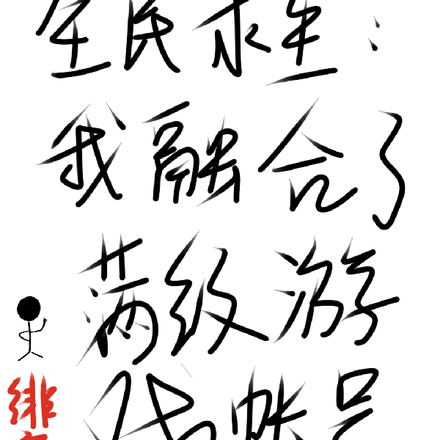 全民求生：
我融合了
满级游
戏帐号
绯